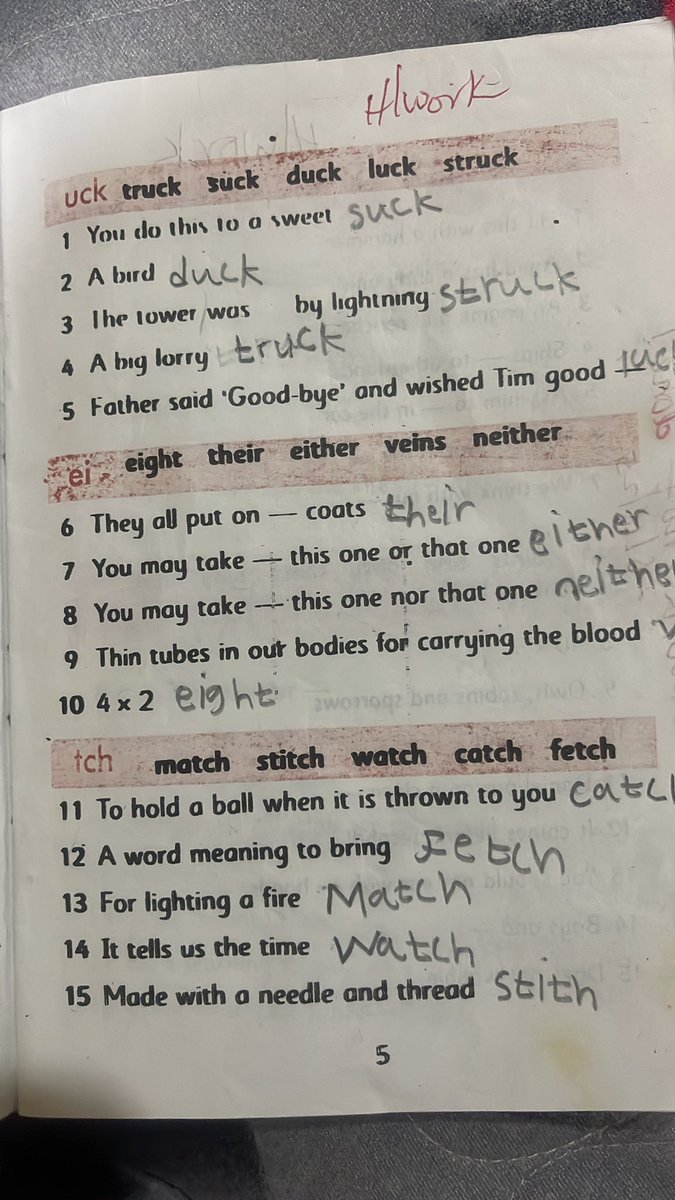 H/work
uck truck suck duck luck struck
1 You do this to a sweet suck
2 A bird duck
3 The tower was by lightning struck
4 A big lorry truck
5 Father said 'Good-bye' and wished Tim good — luc
ei eight their either veins neither
6 They all put on — coats their
7 You may take — this one or that one either
8 You may take — this one nor that one neithe
9 Thin tubes in our bodies for carrying the blood
10 4 x 2 eight
tch match stitch watch catch fetch
11 To hold a ball when it is thrown to you catch
12 A word meaning to bring Fetch
13 For lighting a fire Match
14 It tells us the time Watch
15 Made with a needle and thread Stith
5